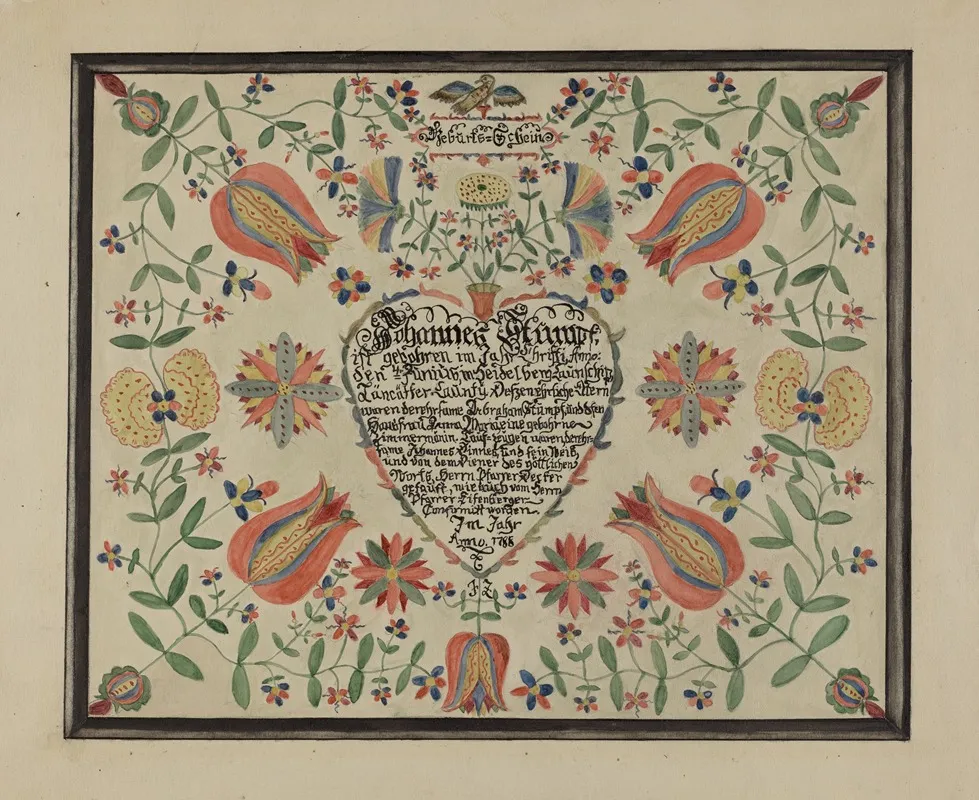 Geburts=Schein
Johannes Stumpf,
ist gebohren im Jahr Christi, Anno:
den 4 Junius, in Heidelberg Taunschip,
Läncäster-Caunty. Deszen ehrliche Eltern
waren der ehrsame Abraham Stumpf, und
Hausfrau Anna Maria, eine gebohrne
Zimmermänin. Tauf-zeugen waren der ehr=
same Johannes und sein Weib,
und von dem Diener des göttlichen
Worts, Herrn Pfarrer
getauft, wie auch vom Herrn
Pfarrer Eisenberger
Confirmirt worden.
Im Jahr
Anno. 1788